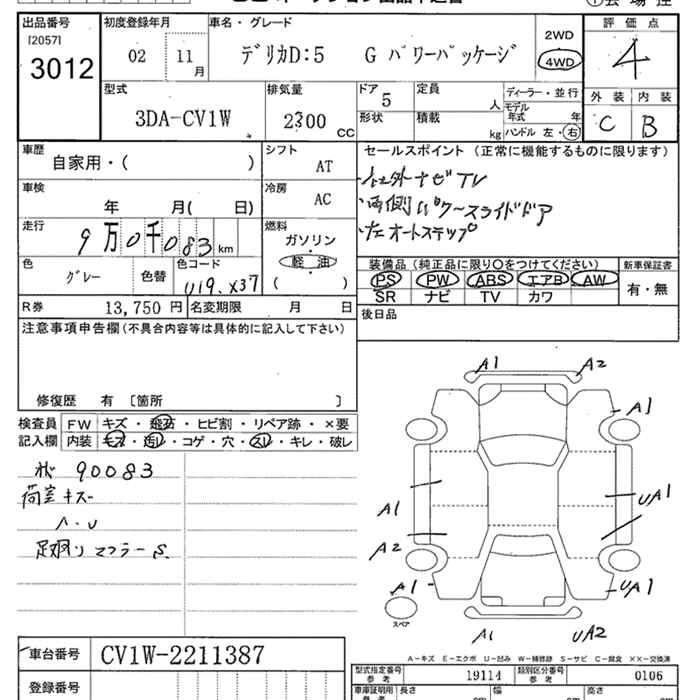 出品番号 初度登録年月 車名・グレード 評価点
[2057]
3012
02 11月
デリカD:5 G パワーパッケージ
2WD
4WD
4
型式 排気量 ドア 定員 ディーラー・並行 外装 内装
3DA-CV1W 2300 CC 5 人
モデル年式 年
形状 積載 kg ハンドル 左・右
C B
車歴 シフト セールスポイント (正常に機能するものに限ります)
自家用・( ) AT
・社外ナビTV
車検 冷房
年 月( 日) AC
・両側パワースライドドア
走行 燃料
9万0千083km ガソリン
・左オートステップ
軽油
( )
色 色コード
グレー 色替 U19.X37
装備品 (純正品に限り〇をつけてください) 新車保証書
PS PW ABS エアB AW
有・無
SR ナビ TV カワ
R券 13,750 円 名変期限 月 日
後日品
注意事項申告欄(不具合内容等は具体的に記入して下さい)
修復歴 有 [箇所 ]
検査員 FW キズ・飛石・ヒビ割・リペア跡・×要
記入欄 内装 キズ・汚レ・コゲ・穴・スレ・キレ・破レ
90083
荷室キズ
ハ・U
足廻りマフラーS
A1 A2
A1
A1 UA1
A2
A1 UA1
スペア
A1 UA2
A-キズ E-エクボ U-凹み W-補修跡 S-サビ C-腐食 XX-交換済
車台番号 CV1W-2211387
型式指定番号 参考 19114 類別区分番号 参考 0106
登録番号
車庫証明用 参考 長さ 幅 高さ